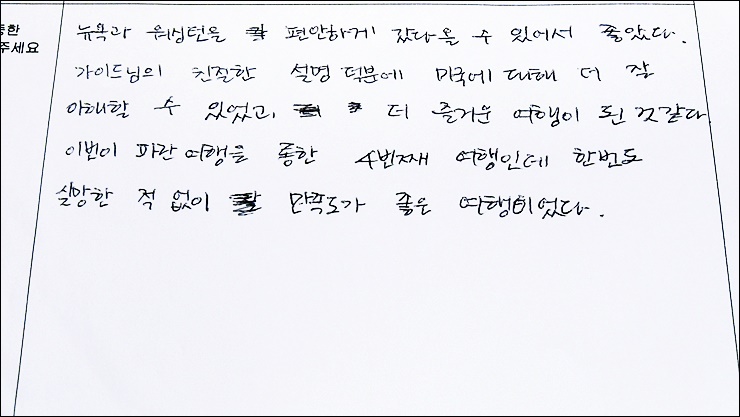 통한
주세요
뉴욕과 워싱턴을 편안하게 갔다올 수 있어서 좋았다.
가이드님의 친절한 설명 덕분에 미국에 대해 더 잘
이해할 수 있었고, 더 즐거운 여행이 된 것 같다
이번이 파란 여행을 통한 4번째 여행인데 한번도
실망한 적 없이 만족도가 좋은 여행이었다.